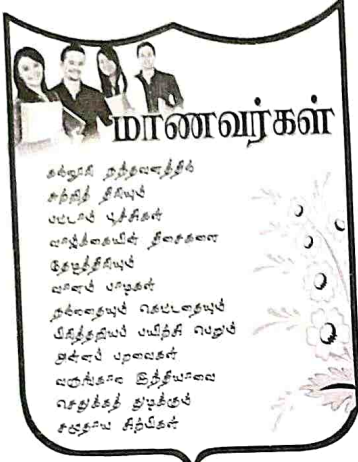 மாணவர்கள்
கல்லூரி நந்தவனத்தில்
சுற்றித் திரியும்
பட்டாம் பூச்சிகள்
வாழ்க்கையின் திசைகளை
தேடித்திரியும்
வானம் பாடிகள்
நல்லதையும் கெட்டதையும்
பிரித்தறியும் பயிற்சி பெறும்
அன்னப் பறவைகள்
வருங்கால இந்தியாவை
செதுக்கத் துடிக்கும்
சமுதாய சிற்பிகள்